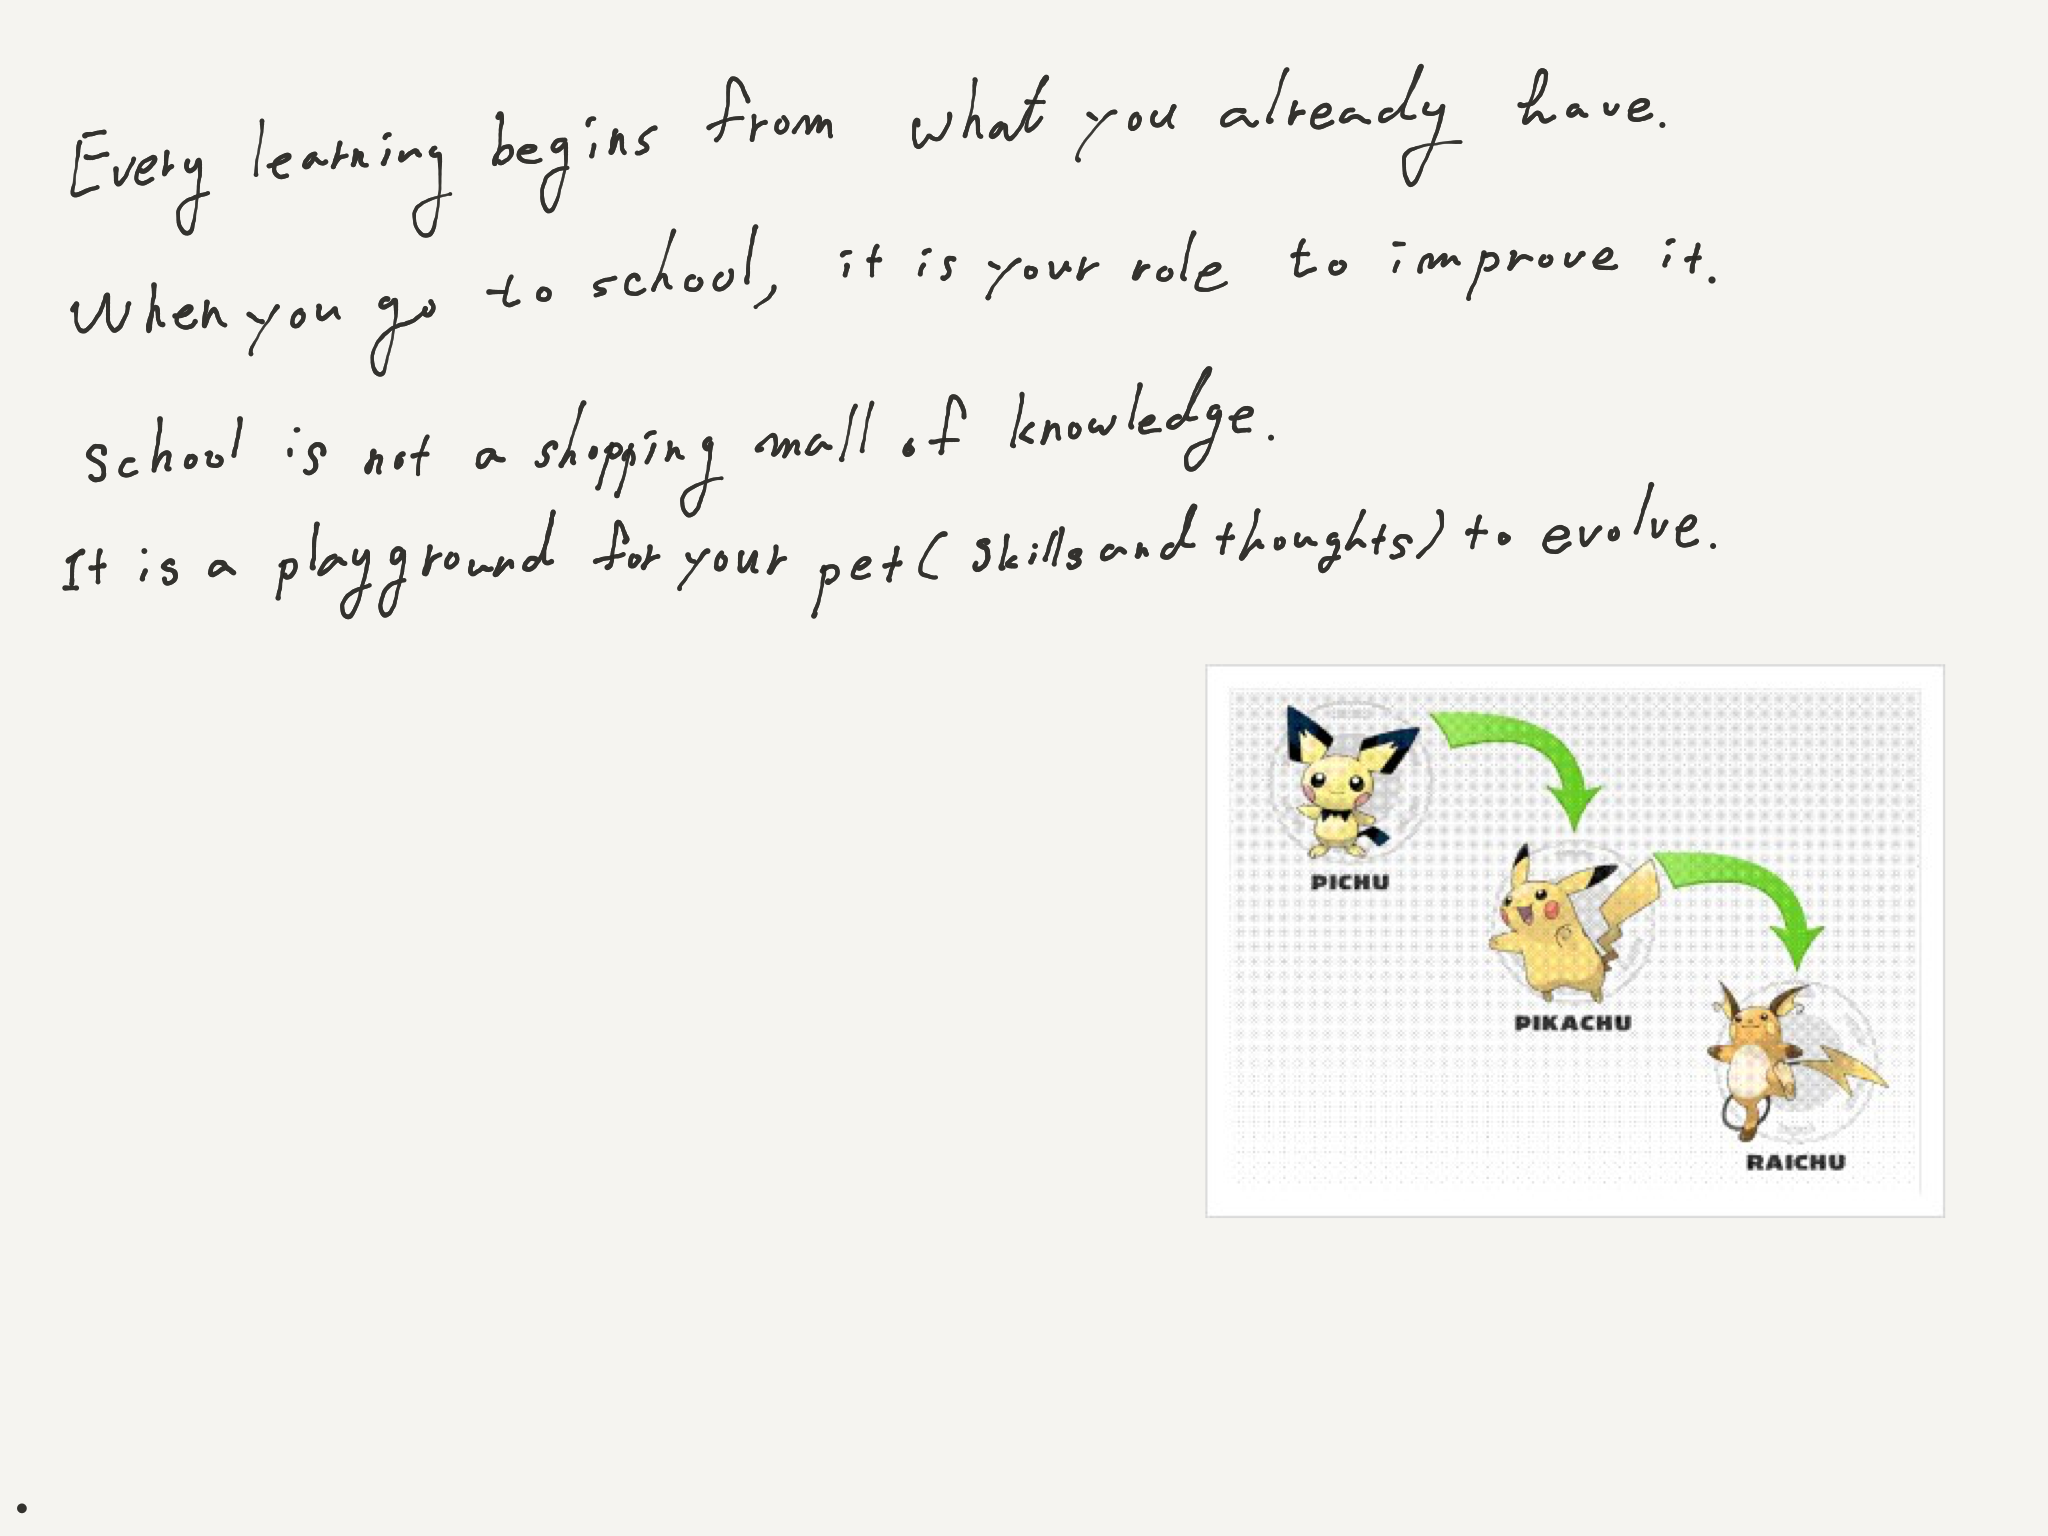 Every learning begins from what you already have.
When you go to school, it is your role to improve it.
School is not a shopping mall of knowledge.
It is a playground for your pet (skills and thoughts) to evolve.
PICHU
PIKACHU
RAICHU